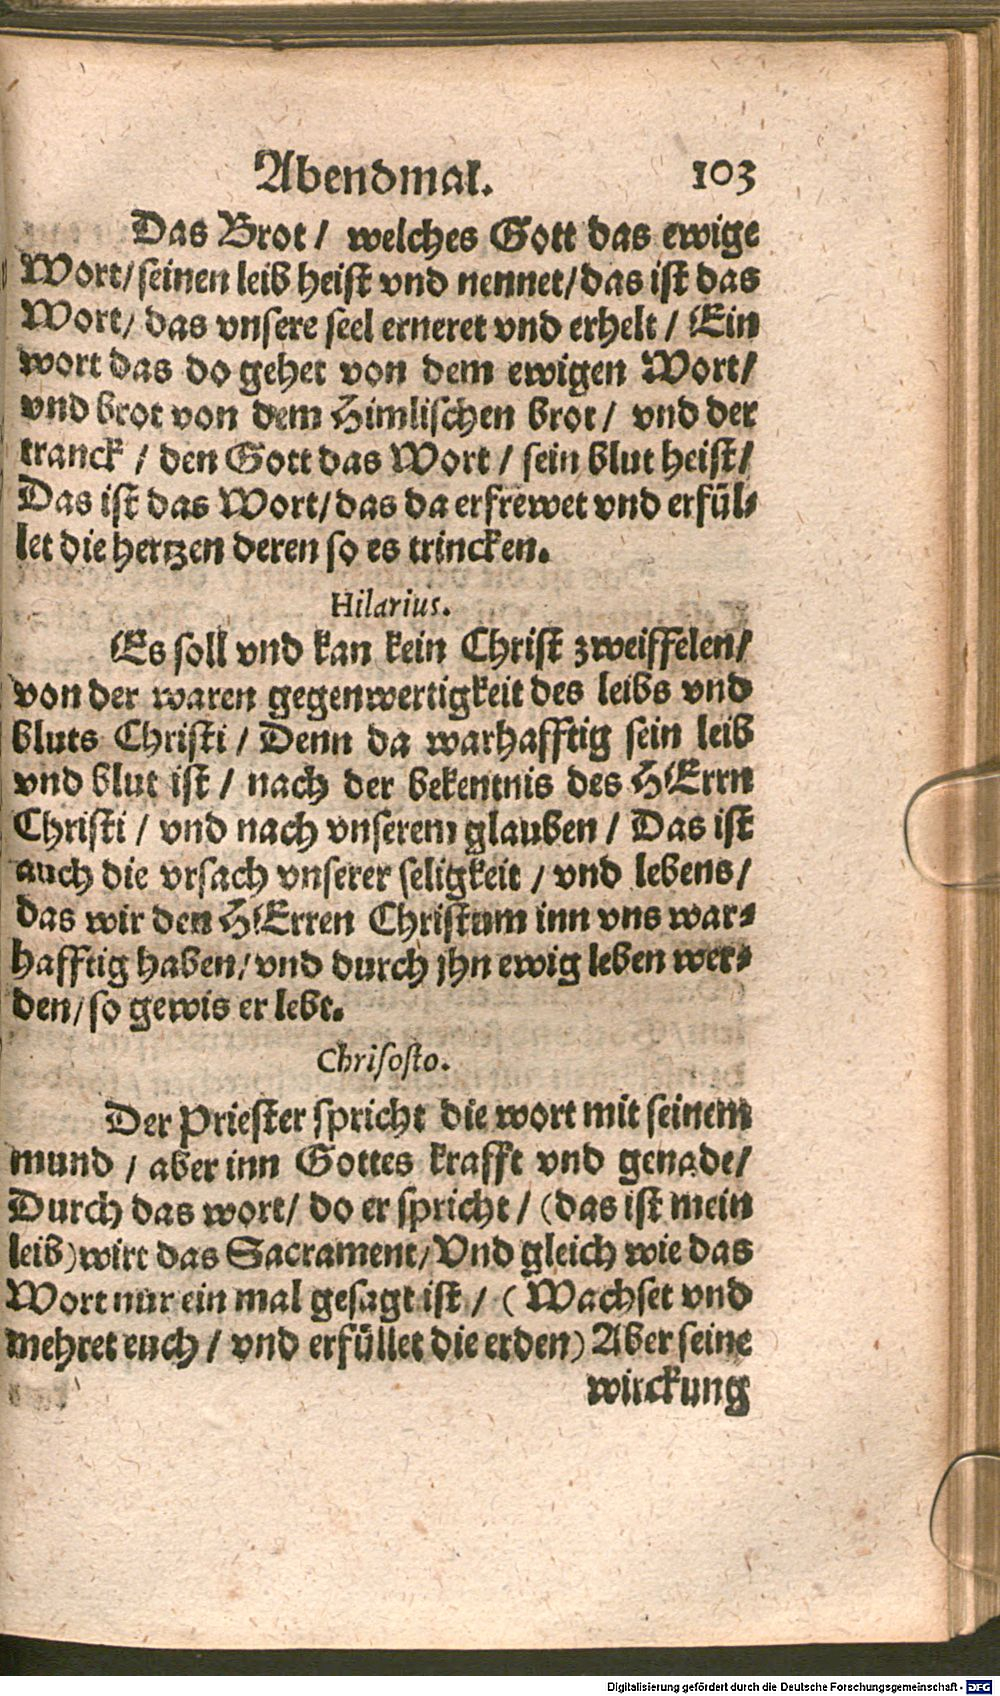 Abendmal. 103
Das Brot / welches Gott das ewige
Wort / seinen leib heist vnd nennet / das ist das
Wort / das vnsere seel erneret vnd erhelt / Ein
wort das do gehet von dem ewigen Wort /
vnd brot von dem Himlischen brot / vnd der
tranck / den Gott das Wort / sein blut heist /
Das ist das Wort / das da erfrewet vnd erfül-
let die hertzen deren so es trincken.
Hilarius.
Es soll vnd kan kein Christ zweiffelen /
von der waren gegenwertigkeit des leibs vnd
bluts Christi / Denn da warhafftig sein leib
vnd blut ist / nach der bekentnis des HErrn
Christi / vnd nach vnserem glauben / Das ist
auch die vrsach vnserer seligkeit / vnd lebens /
das wir den HErren Christum inn vns war-
hafftig haben / vnd durch jhn ewig leben wer-
den / so gewis er lebt.
Chrisosto.
Der Priester spricht die wort mit seinem
mund / aber inn Gottes krafft vnd genade /
Durch das wort / do er spricht / (das ist mein
leib) wirt das Sacrament / Vnd gleich wie das
Wort nur ein mal gesagt ist / (Wachset vnd
mehret euch / vnd erfüllet die erden) Aber seine
wirckung
Digitalisierung gefördert durch die Deutsche Forschungsgemeinschaft - DFG